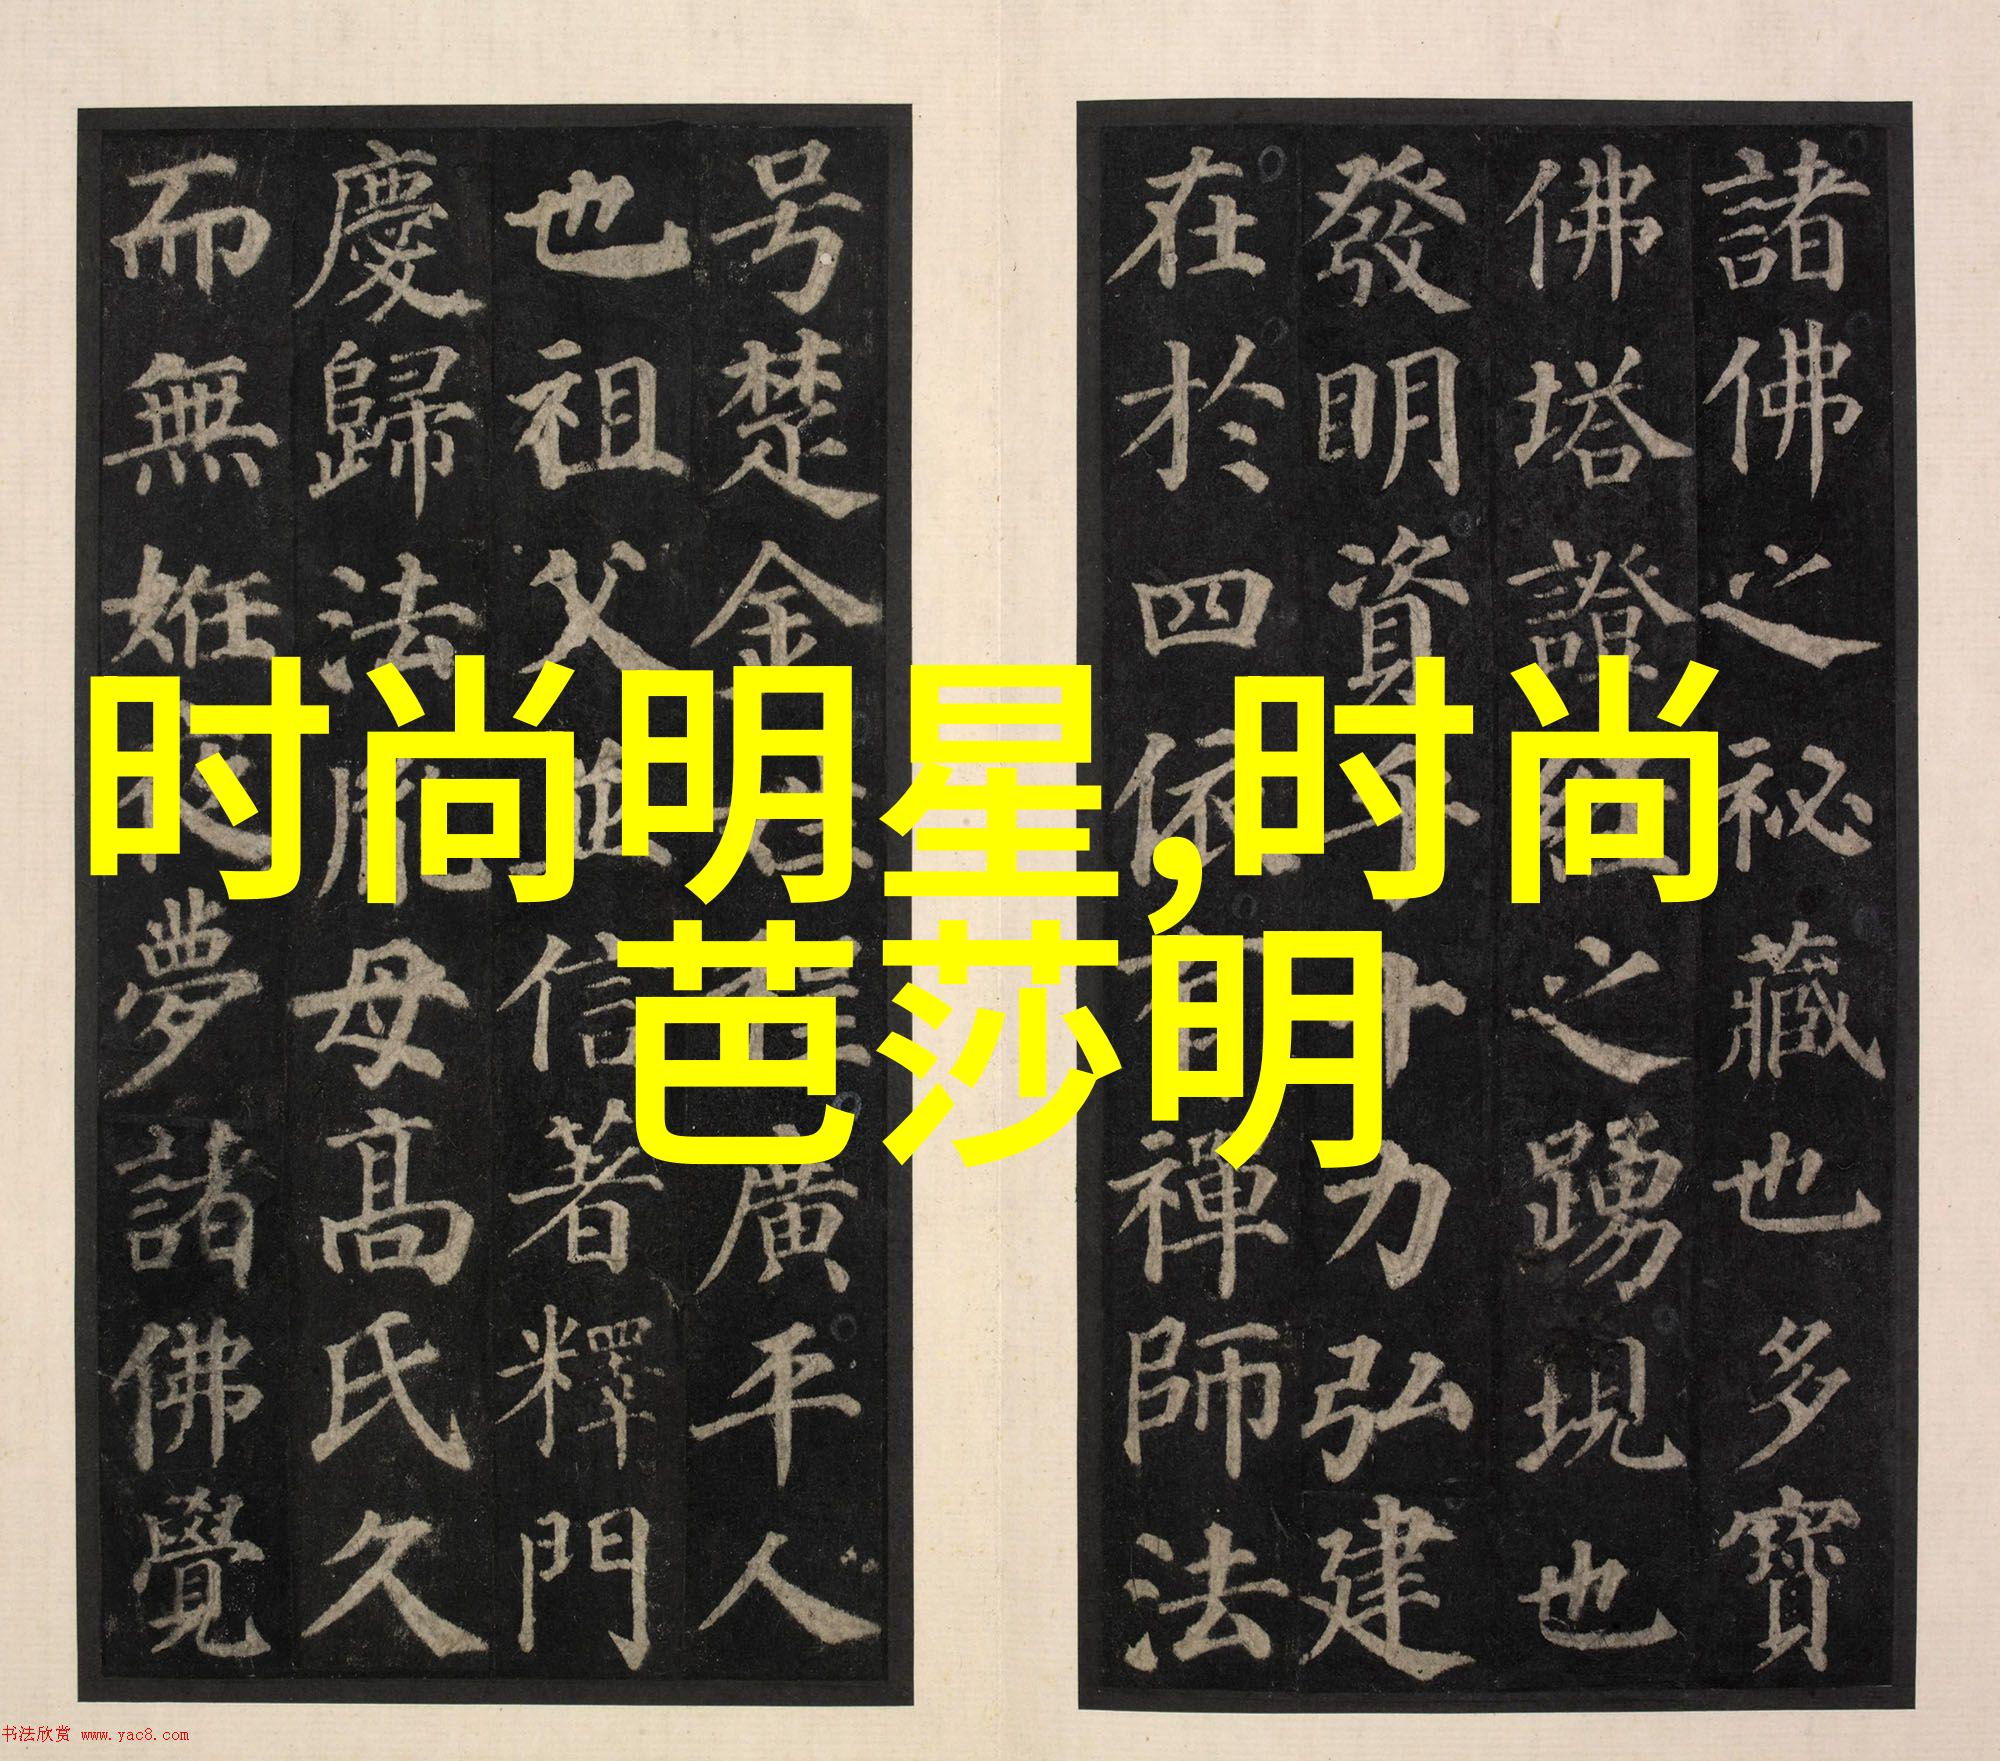 时尚明星,时尚
芭莎明
諸佛之祕藏也多寶
佛塔證經之踴現也
發明資乎十力弘建
在於四依有禪師法
号楚金姓程廣平人
也祖父並信著釋門
慶歸法胤母髙氏久
而無姙夜夢諸佛覺
书法欣赏 www.yac8.com